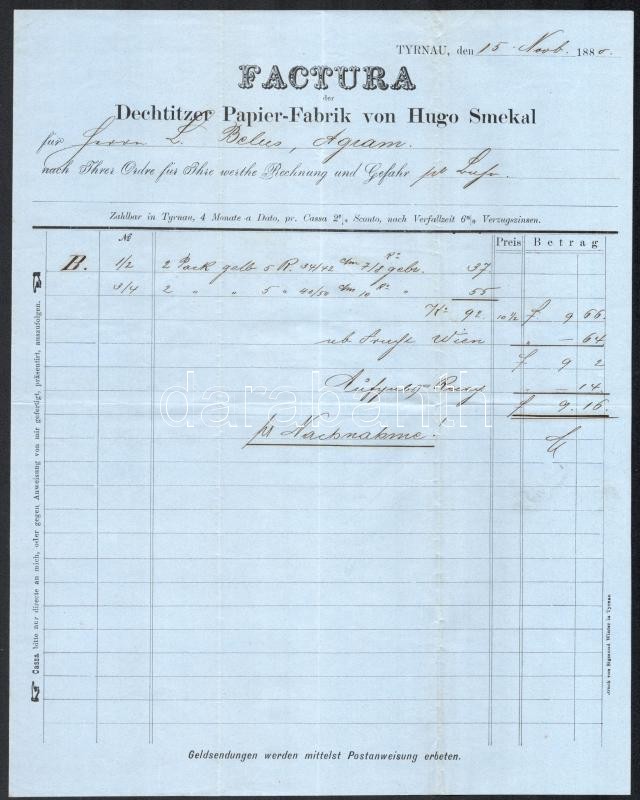 TYRNAU, den 15. Novb. 1880.
FACTURA
der
Dechtitzer Papier-Fabrik von Hugo Smekal
für Herrn L. Belus, Agram.
nach Ihrer Ordre für Ihre werthe Rechnung und Gefahr pr
Zahlbar in Tyrnau, 4 Monate a Dato, pr. Cassa 2% Sconto, nach Verfallzeit 6% Verzugszinsen.
№ Preis Betrag
B. 1/2 2 Pack gelb 5 R. 34/42 c/m 7/8 Ko gebr. 37
3/4 2 " " 5 " 40/50 c/m 10 Ko " 55
Ko 92 10 1/2 f 9 66
ab Wien " – 64
f 9 2
" – 14
f 9.16
pr Nachnahme!
darabanth
Cassa bitte nur directe an mich, oder gegen Anweisung von mir gefertigt, präsentirt, auszufolgen.
Druck von Sigmund Winter in Tyrnau
Geldsendungen werden mittelst Postanweisung erbeten.